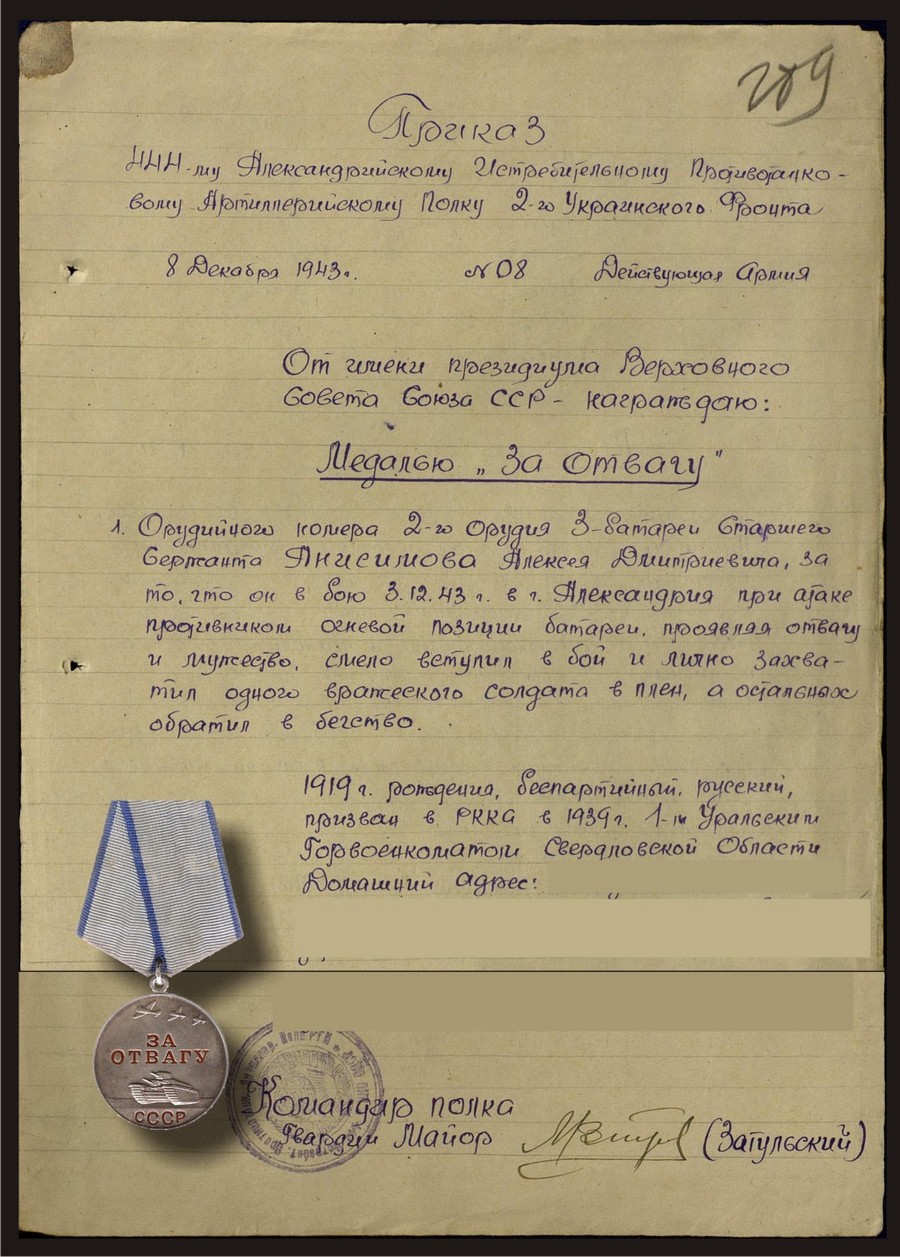 209
Приказ
444-му Александрийскому Истребительному Противотанко-
вому Артиллерийскому Полку 2-го Украинского Фронта
8 Декабря 1943г. №08 Действующая Армия
От имени президиума Верховного
Совета Союза ССР - награждаю:
Медалью „За Отвагу"
1. Орудийного номера 2-го орудия 3-батареи Старшего
Сержанта Анисимова Алексея Дмитриевича, за
то, что он в бою 3.12.43 г. в г. Александрия при атаке
противником огневой позиции батареи, проявляя отвагу
и мужество, смело вступил в бой и лично захва-
тил одного вражеского солдата в плен, а остальных
обратил в бегство.
1919 г. рождения, беспартийный, русский,
призван в РККА в 1939г. 1-м Уральским
Горвоенкоматом Свердловской Области
Домашний адрес:
ЗА
ОТВАГУ
СССР
Командир полка
Гвардии Майор (Затульский)